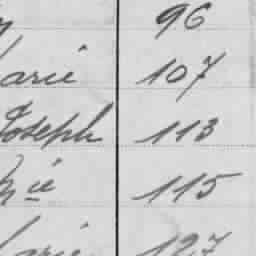 96
arie 107
Joseph 113
M ie 115
arie 127